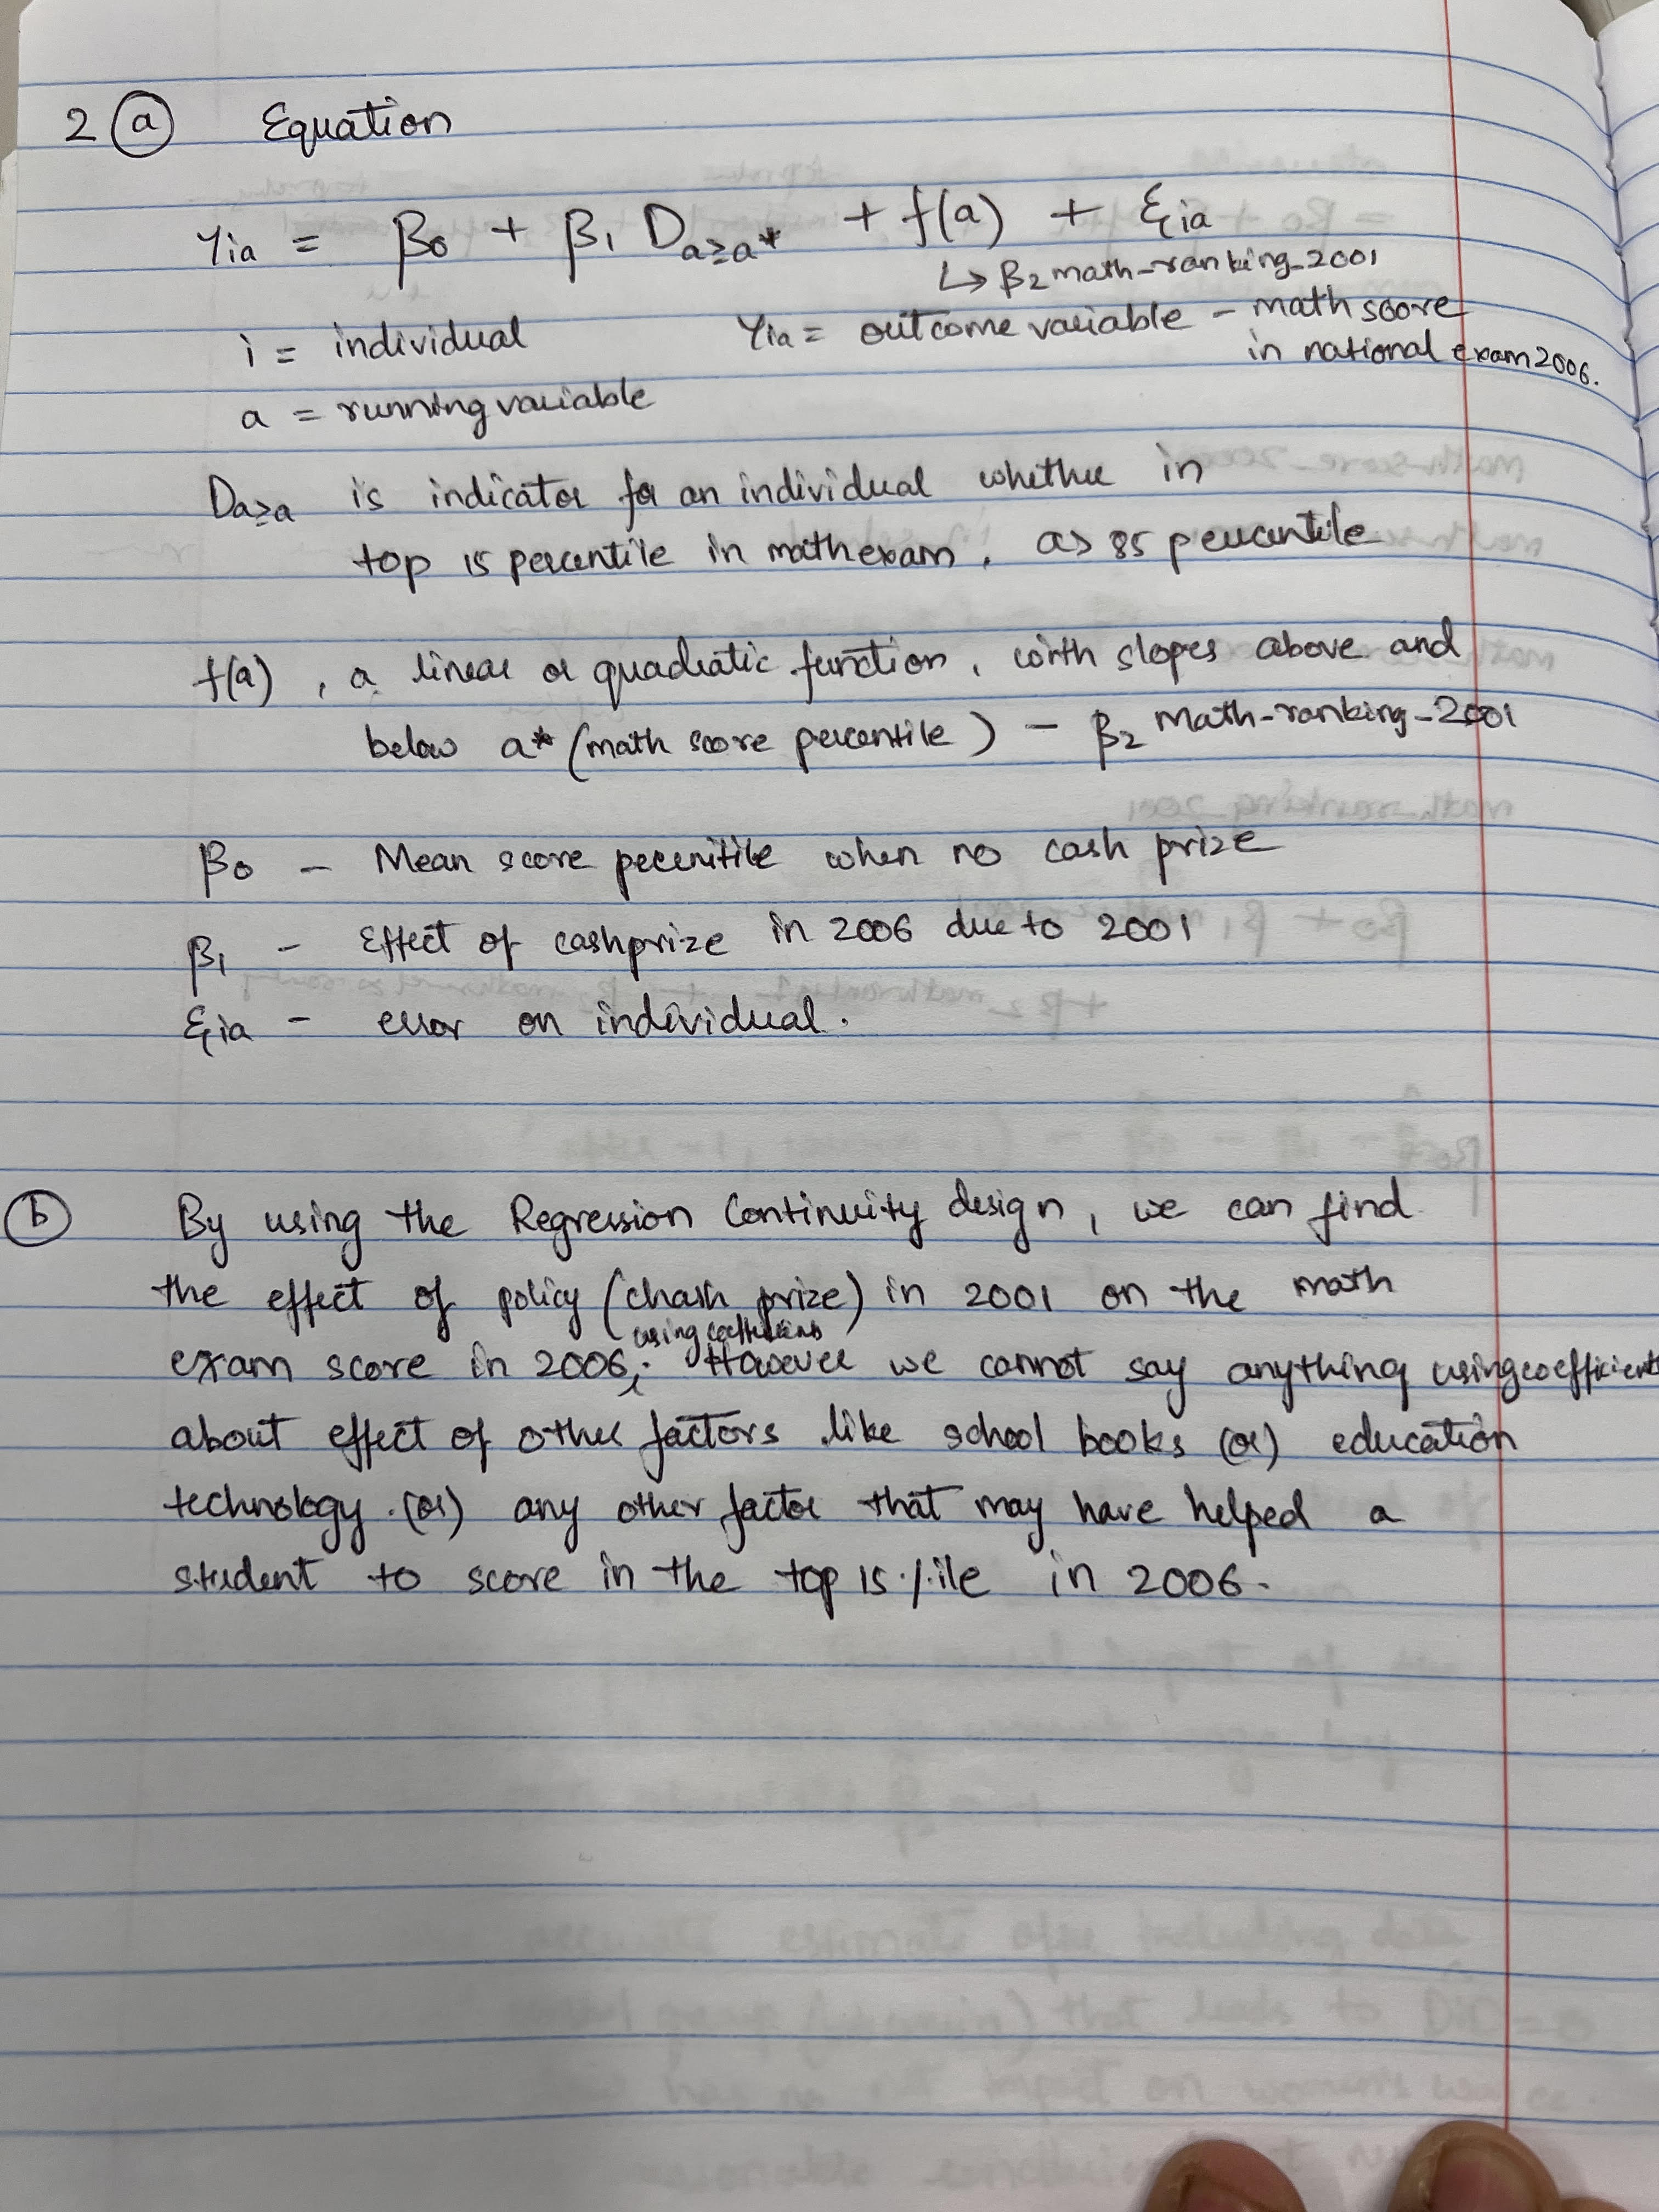 2 (a) Equation
Yia = β0 + β1 Da≥a* + f(a) + εia
↳ β2 math-ranking-2001
i = individual Yia = outcome variable - math score
in national exam 2006.
a = running variable
Da≥a is indicator for an individual whether in
top 15 percentile in math exam, a> 85 percentile
f(a), a linear or quadratic function, with slopes above and
below a* (math score percentile) - β2 Math-ranking-2001
β0 - Mean score pecenitile when no cash prize
β1 - Effect of cashprize in 2006 due to 2001
εia - error on individual.
(b) By using the Regression Continuity design, we can find
the effect of policy (chash prize) in 2001 on the math
using coefficients
exam score in 2006. However we cannot say anything using coefficients
about effect of other factors like school books (or) education
technology (or) any other factor that may have helped a
student to score in the top 15 %ile in 2006.